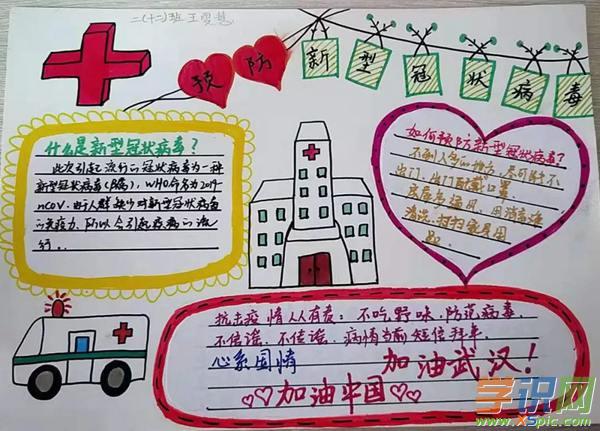 二(十二)班王
预防新型冠状病毒
什么是新型冠状病毒?
此次引起流行的冠状病毒为一种
新型冠状病毒(β属),WHO命名为2019-
nCOV.由于人群缺少对新型冠状病毒
的免疫力,所以会引起疾病的流
行。
如何预防新型冠状病毒?
不到人多的地方,尽可能不
出门,出门配戴口罩
房屋多通风,用消毒
清洗
抗击疫情人人有责:不吃野味,防范病毒,
不信谣、不传谣,病情当前短信拜年
心系国情 加油武汉!
加油中国
学识网
www.xspic.com